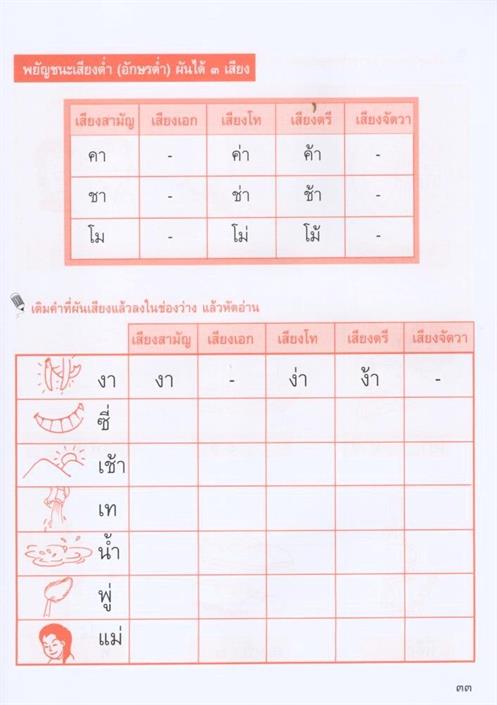 พยัญชนะเสียงต่ำ (อักษรต่ำ) ผันได้ ๓ เสียง
เสียงสามัญ เสียงเอก เสียงโท เสียงตรี เสียงจัตวา
คา - ค่า ค้า -
ชา - ช่า ช้า -
โม - โม่ โม้ -
เติมคำที่ผันเสียงแล้วลงในช่องว่าง แล้วหัดอ่าน
เสียงสามัญ เสียงเอก เสียงโท เสียงตรี เสียงจัตวา
งา งา - ง่า ง้า -
ซี่
เช้า
เท
น้ำ
พู่
แม่
๓๓